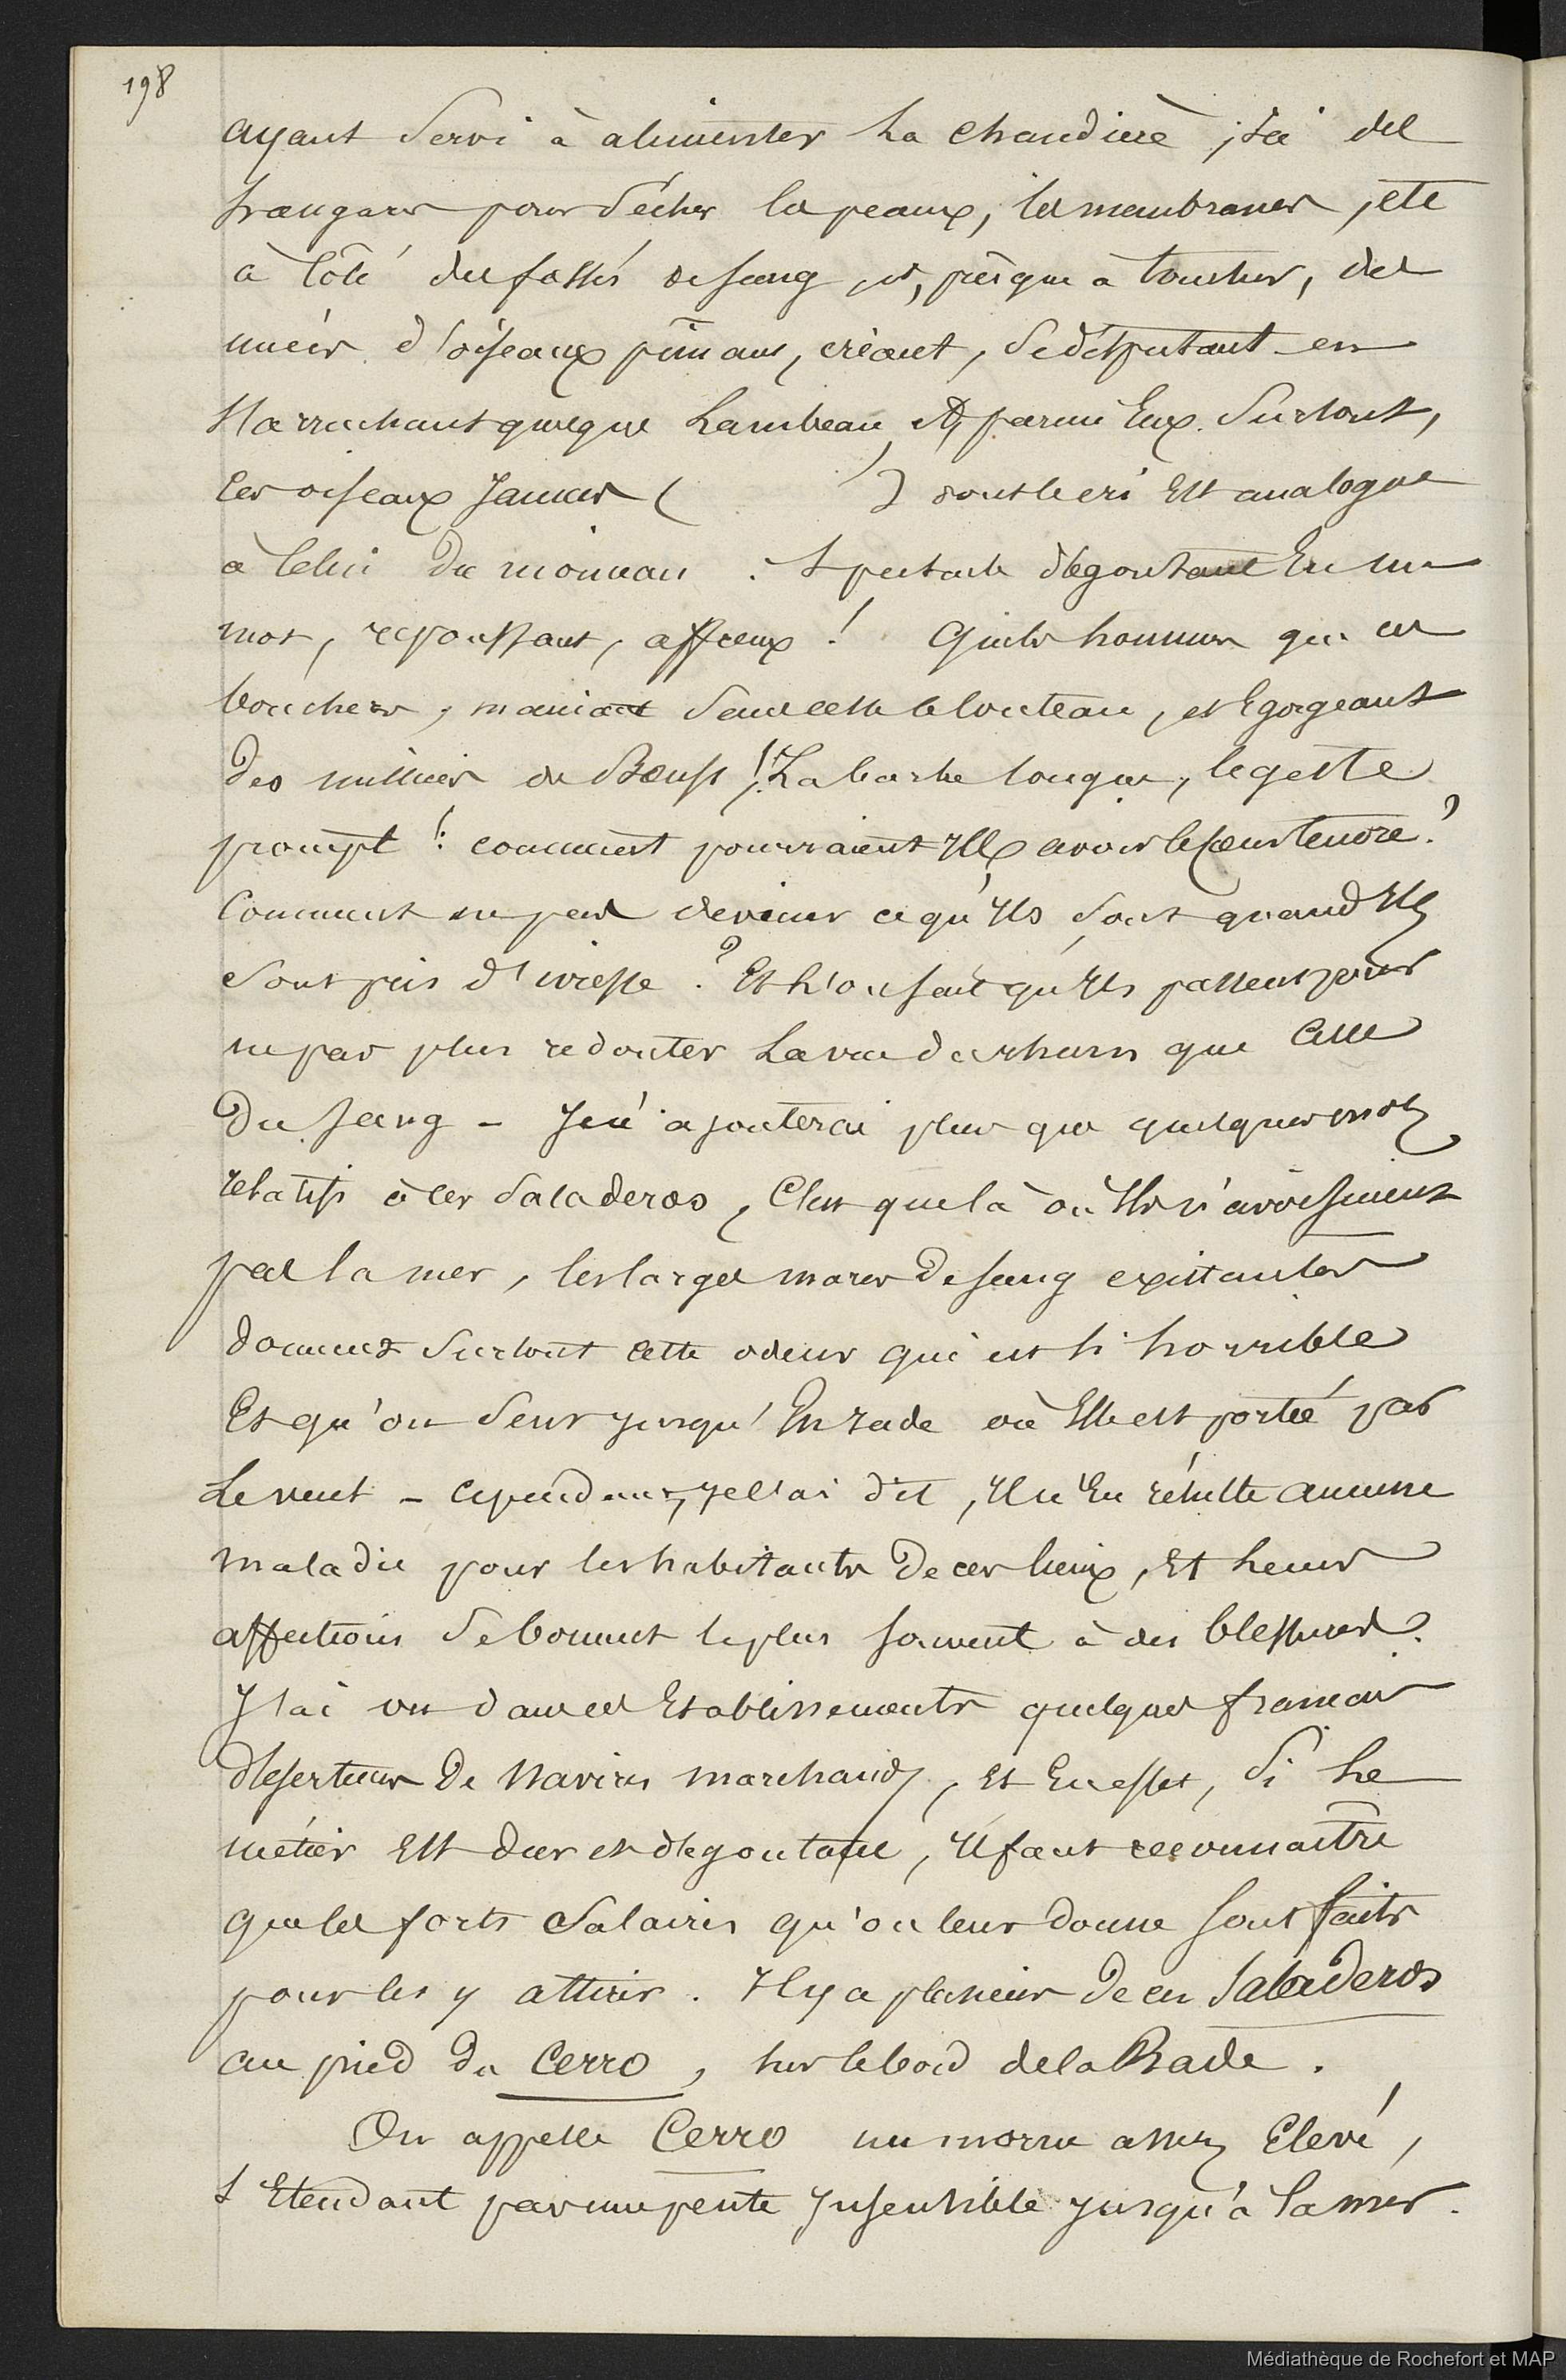 198
ayant servi à alimenter la chaudière ; ici des
hangars pour sécher les peaux, les membranes, etc
à côté des fossés de sang, et, presque à toucher, des
nuées d'oiseaux piaillant, criant, se disputant en
s'arrachant quelque lambeau, et, parmi eux surtout,
les oiseaux jaunes ( ) dont le cri est analogue
à celui du moineau. Spectacle dégoutant en un
mot, repoussant, affreux ! Quels hommes que ces
bouchers, maniant sans cesse le couteau, et égorgeant
des milliers de Bœufs ! La barbe longue, le geste
prompt ! comment pourraient ils avoir le cœur tendre ?
Comment ne pas deviner ce qu'ils sont quand ils
sont pris d'ivresse ? Et l'on sait qu'ils passent pour
ne pas plus redouter la vue du rhum que celle
du sang - Je n'ajouterai plus que quelques mots
relatifs à ces Saladeros, c'est que là où ils n'avoisinent
pas la mer, les larges mares de sang existantes
donnent surtout cette odeur qui est si horrible
Et qu'on sent jusqu'en rade où Elle est portée par
le vent - cependant, je l'ai dit, il n'en résulte aucune
maladie pour les habitants de ces lieux, Et leurs
affections se bornent le plus souvent à des blessures.
J'ai vu dans ces Etablissements quelques français
déserteurs de Navires marchands, et En effet, si le
métier est dur et dégoutant, il faut reconnaître
que les forts salaires qu'on leur donne sont faits
pour les y attirer. Il y a plusieurs de ces Saladeros
au pied du Cerro, sur le bord de la Rade.
On appelle Cerro un morne assez Elevé,
s'étendant par une pente insensible jusqu'à la mer.
Médiathèque de Rochefort et MAP